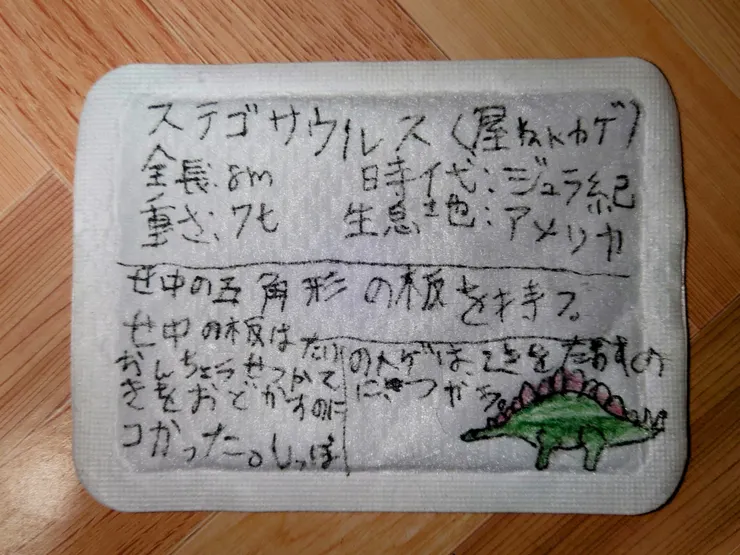 ステゴサウルス(屋ねトカゲ)
全長:8m 時代:ジュラ紀
重さ:7t 生息地:アメリカ
せ中の五角形の板を持つ。
せ中の板はたい
おんちょうせつかて
きをおどかすのに
つかった。しっぽ
のトゲは、てきをたおすの
に、つかう。